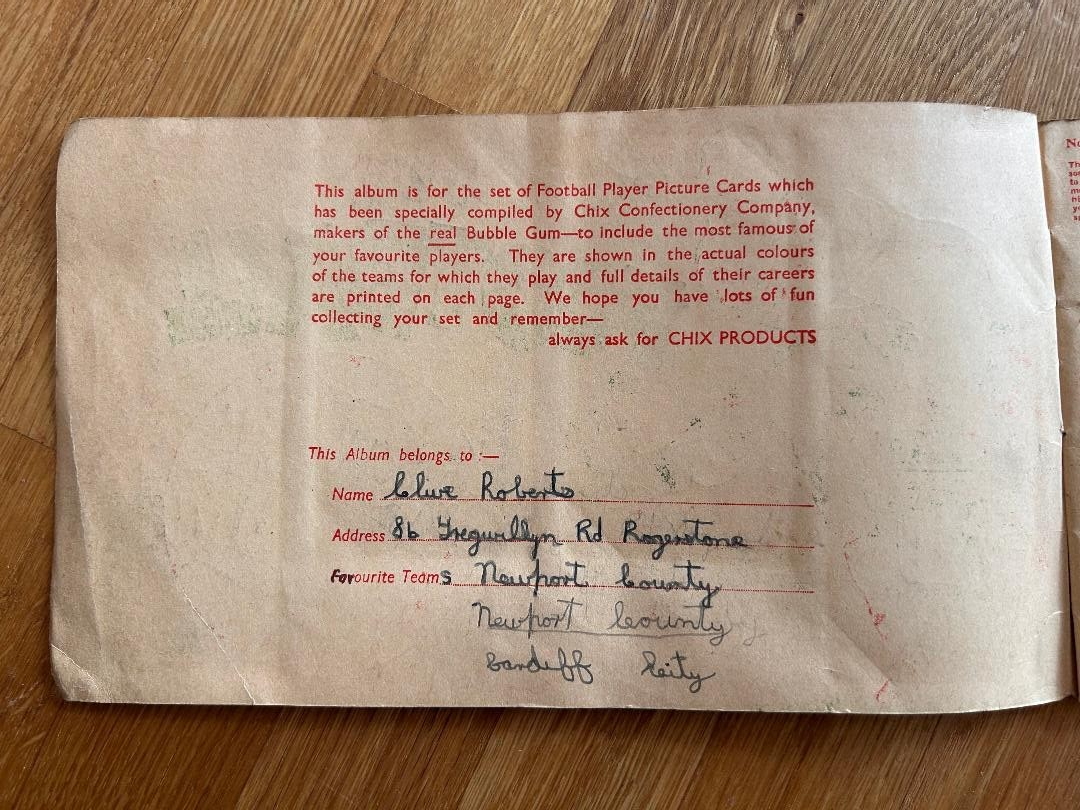 This album is for the set of Football Player Picture Cards which
has been specially compiled by Chix Confectionery Company,
makers of the real Bubble Gum—to include the most famous of
your favourite players. They are shown in the actual colours
of the teams for which they play and full details of their careers
are printed on each page. We hope you have lots of fun
collecting your set and remember—
always ask for CHIX PRODUCTS
This Album belongs to :—
Name Clive Roberts
Address 86 Tregwillyn Rd Rogerstone
Favourite Teams Newport County
Newport County
Cardiff City